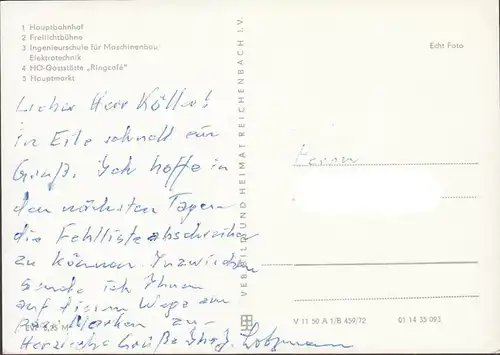 1 Hauptbahnhof
2 Freilichtbühne
3 Ingenieurschule für Maschinenbau
Elektrotechnik
4 HO-Gaststätte „Ringcafé"
5 Hauptmarkt
Lieber Herr Köller!
in Eile schnell ein
Gruß. Ich hoffe in
den nächsten Tagen
die Fehlliste abschreiben
zu können. Inzwischen
sende ich Ihnen
auf diesem Wege ein
paar Marken zu.
Herzliche Grüße Ihr
VEB BILD UND HEIMAT REICHENBACH I. V.
Echt Foto
Herrn
V 11 50 A 1/B 459/72 01 14 35 093